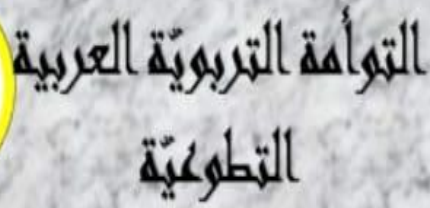 التوأمة التربويّة العربية
التطوعيّة